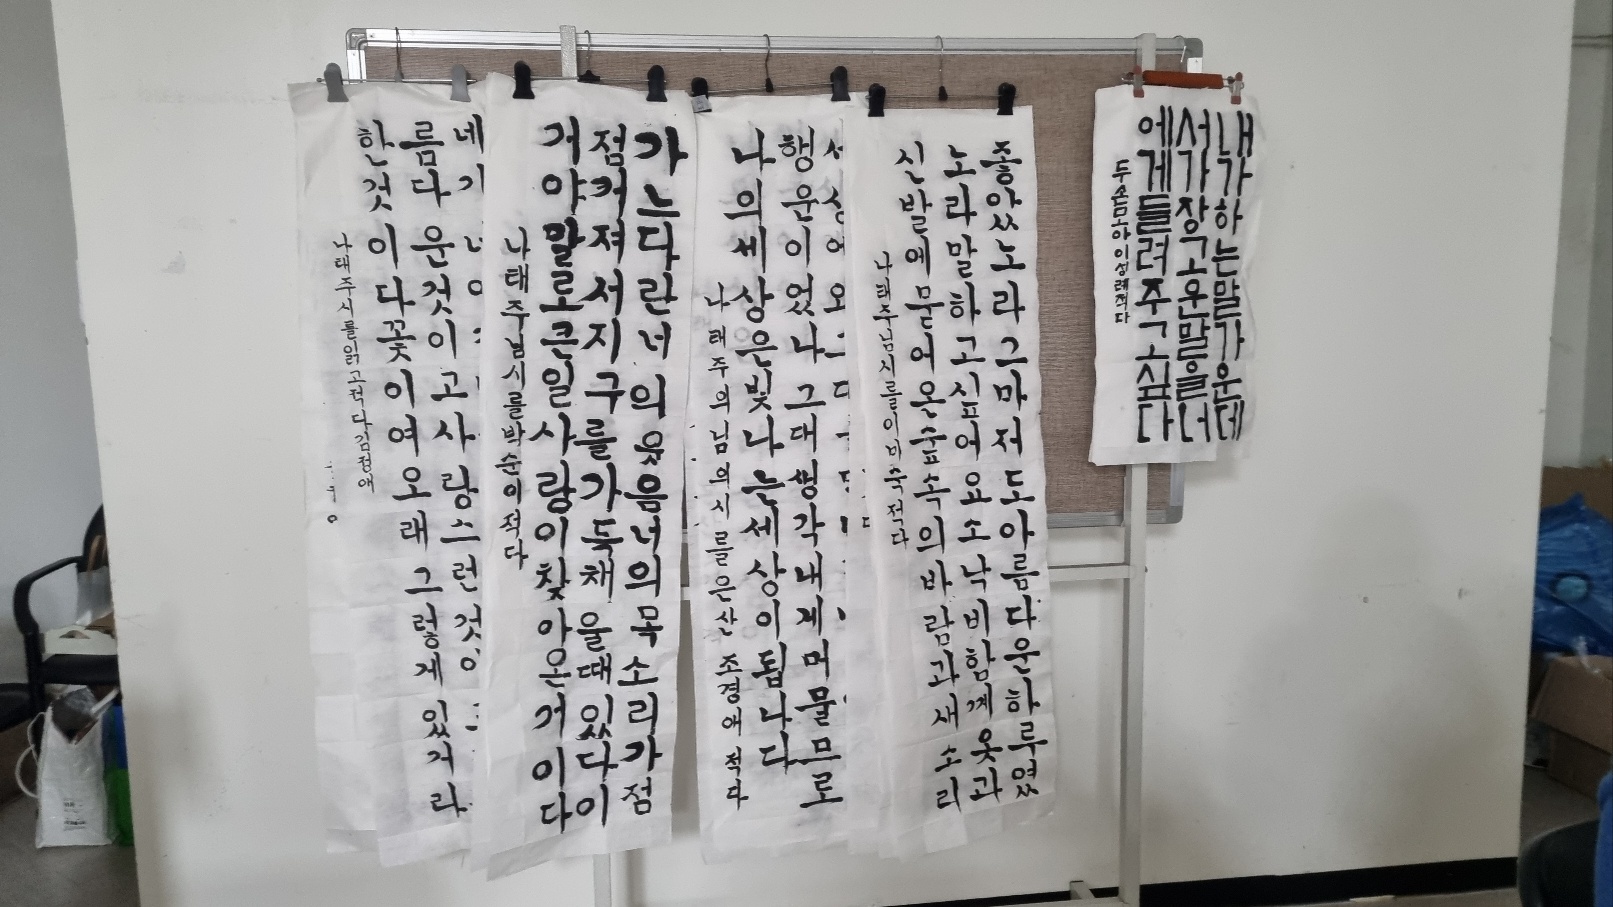 내가하는말가운데
서가장고운말을너
에게들려주고싶다
두손모아이성례적다
좋았노라그마저도아름다운하루였
노라말하고싶어요소낙비함께옷과
신발에묻어온숲속의바람과새소리
나태주님시를이비숙적다
행운이었나그대생각내게머물므로
나의세상은빛나는세상이됩나다
나태주의님의시를은산조경애적다
가느다란너의웃음너의목소리가점
점커져서지구를가득채울때있다이
거야말로큰일사랑이찾아온거이다
나태주님시를박순이적다
름다운것이고사랑스런것이
한것이다꽃이여오래그렇게있거라
나태주시를읽고적다김정애